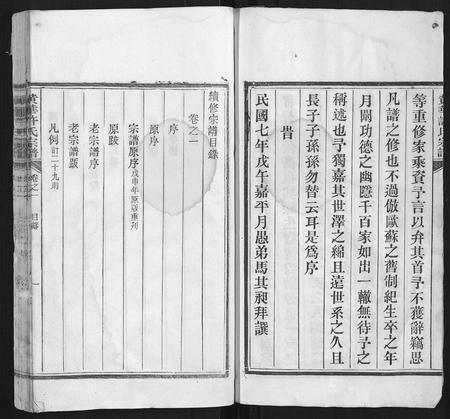 等重修家乘資予言以弁其首予不獲辭竊思
凡譜之修也不過倣歐蘇之舊制紀生卒之年
月闡功德之幽隱千百家如出一轍無待予之
稱述也予獨嘉其世澤之綿且遠世系之久且
長子子孫孫勿替云耳是爲序
旹
民國七年戊午嘉平月愚弟馬其昶拜譔
黃華許氏宗譜
卷之一
目錄
一
續修宗譜目錄
卷之一
序
原序
宗譜原序戊申年原版重刊
原跋
老宗譜序
老宗譜跋
凡例訂二十九則